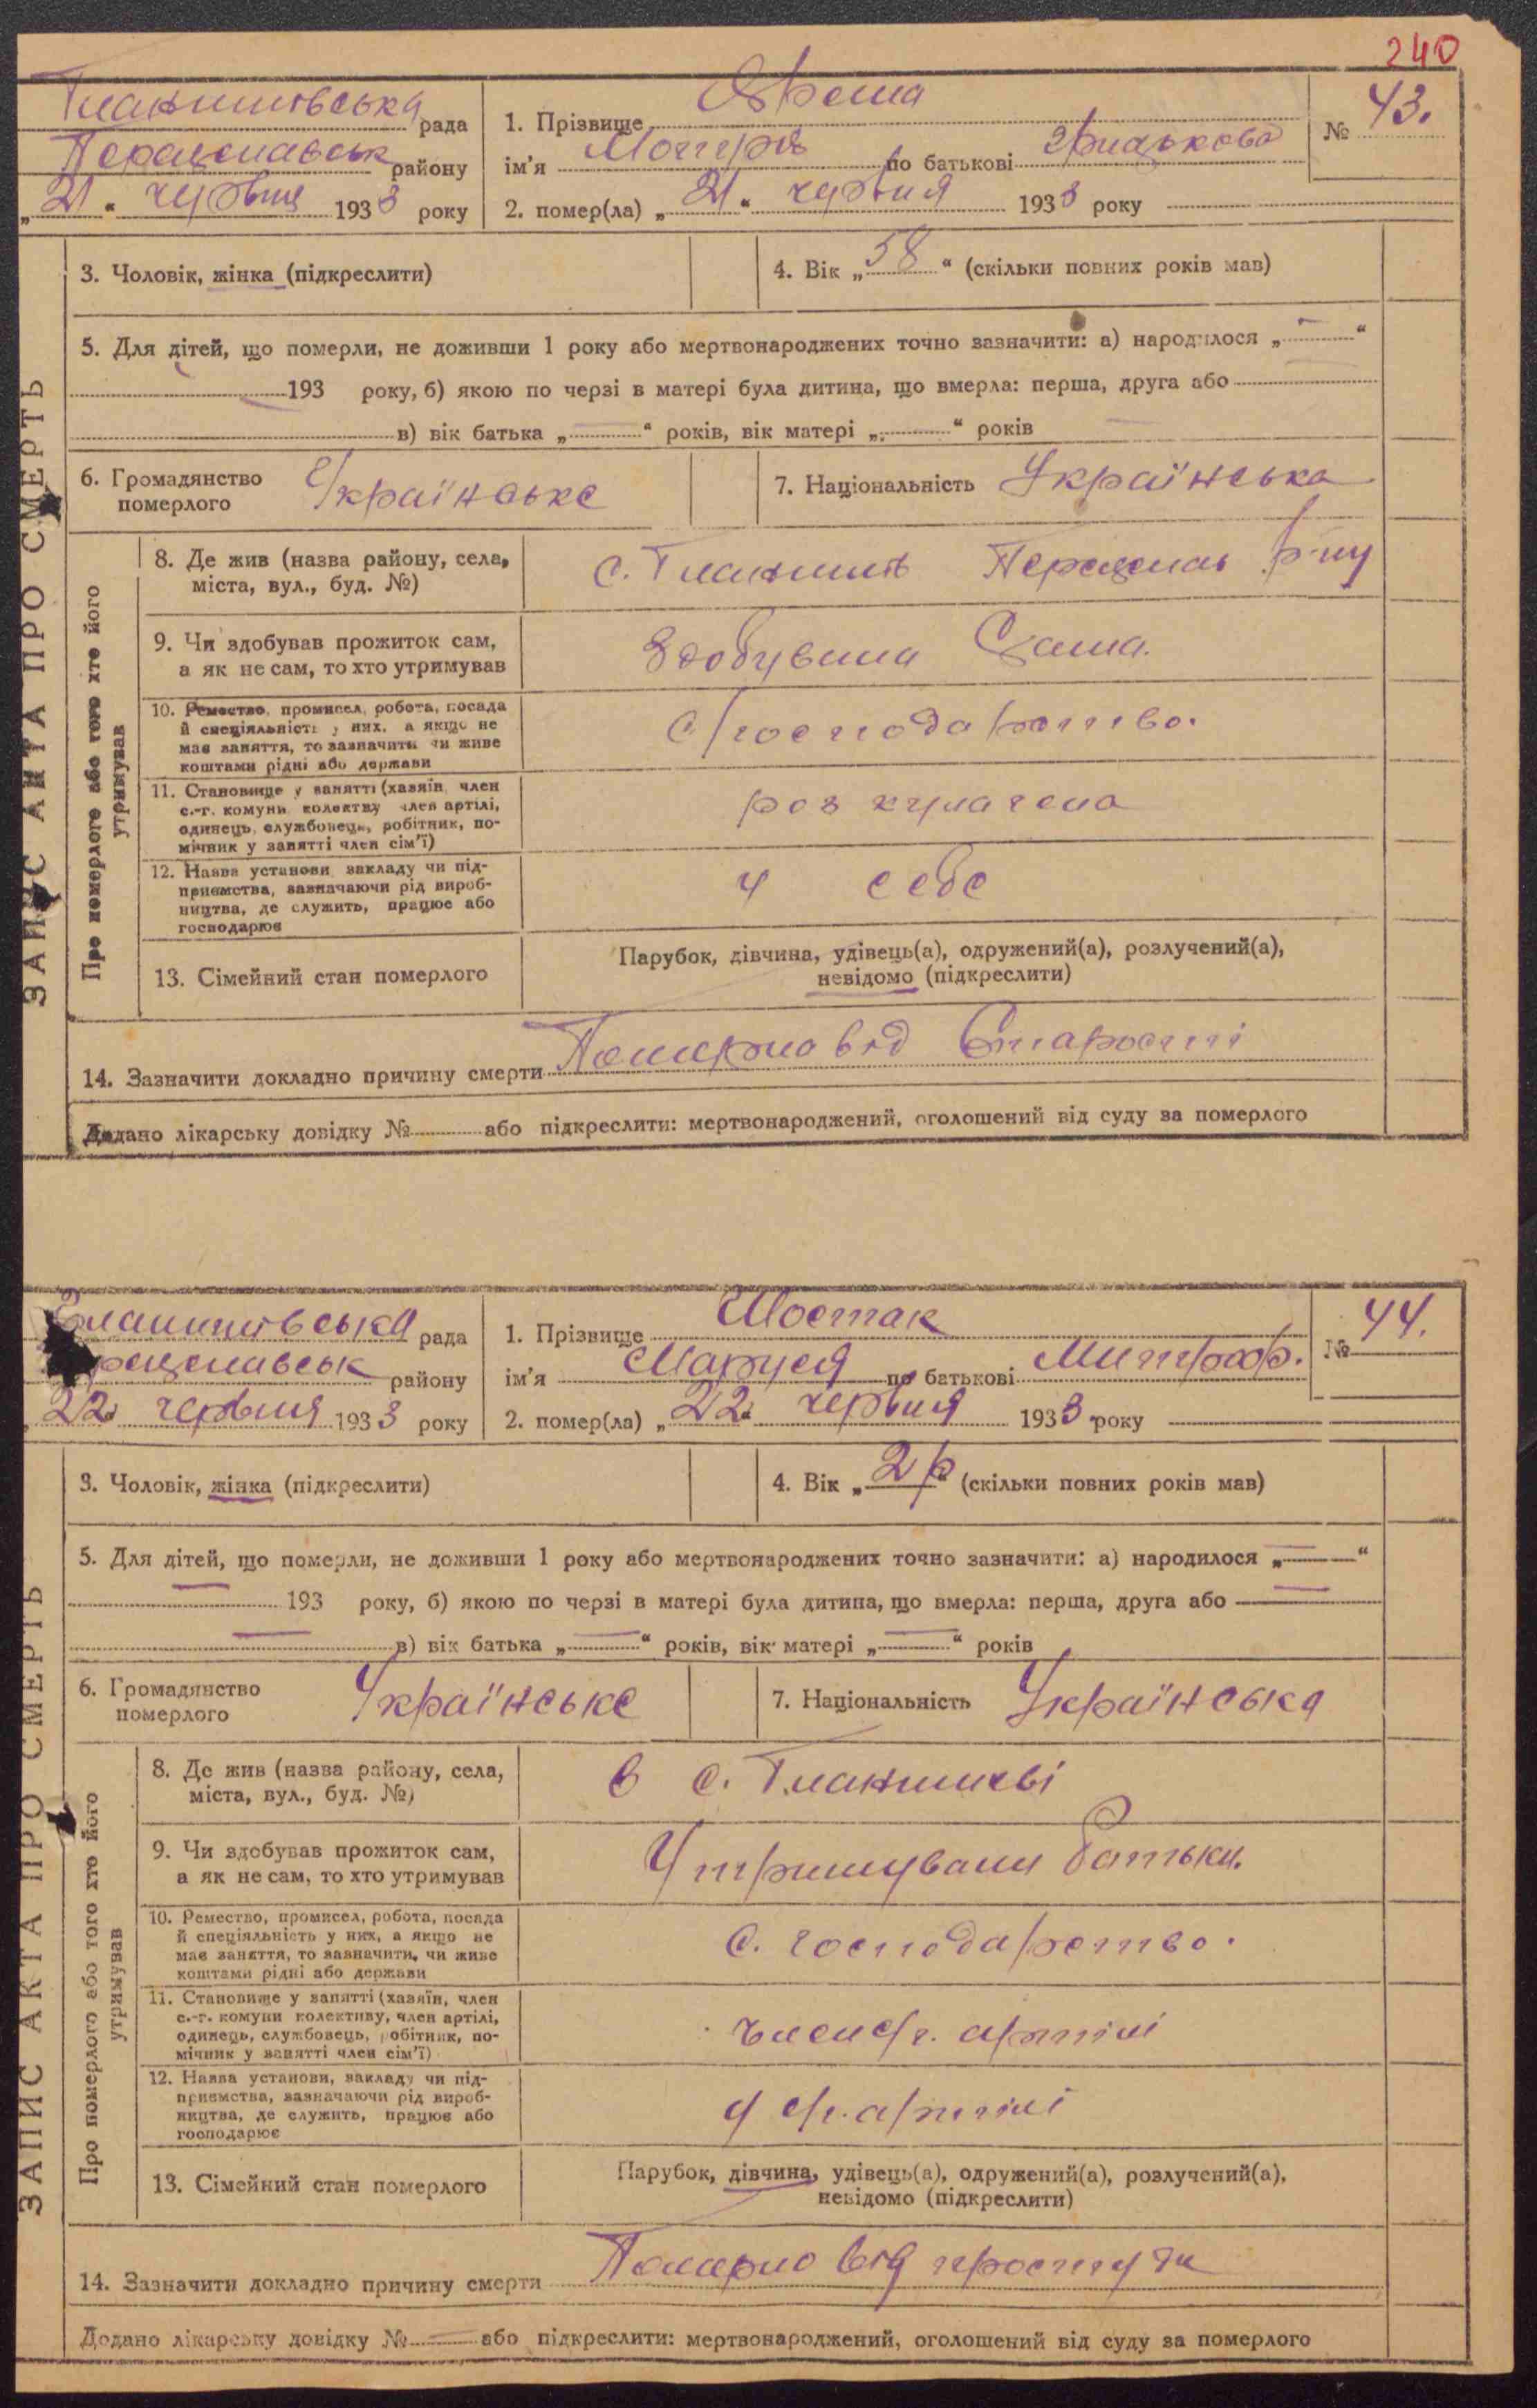 240
Гланишівська рада
Переяславськ району
„21“ червня 1933 року
1. Прізвище Ярема
ім'я Мотря по батькові Грицькова
2. помер(ла) „21“ червня 1933 року
№ 43.
3. Чоловік, жінка (підкреслити)
4. Вік „58“ (скільки повних років мав)
5. Для дітей, що померли, не доживши 1 року або мертвонароджених точно зазначити: а) народилося „—“
193 року, б) якою по черзі в матері була дитина, що вмерла: перша, друга або
в) вік батька „—“ років, вік матері „—“ років
6. Громадянство
померлого
Українське
7. Національність Українська
ЗАПИС АКТА ПРО СМЕРТЬ
Про померлого або того хто його
утримував
8. Де жив (назва району, села,
міста, вул., буд. №)
с. Гланишів Переяслав р-ну
9. Чи здобував прожиток сам,
а як не сам, то хто утримував
Здобувала Сама.
10. Ремество, промисел, робота, посада
й спеціяльність у них, а якщо не
має заняття, то зазначити чи живе
коштами рідні або держави
С/господарство.
11. Становище у занятті (хазяїн, член
с.-г. комуни колективу член артілі,
одинець, службовець, робітник, по-
мічник у занятті член сім'ї)
розкулачена
12. Назва установи, закладу чи під-
приємства, зазначаючи рід вироб-
ництва, де служить, працює або
господарює
у себе
13. Сімейний стан померлого
Парубок, дівчина, удівець(а), одружений(а), розлучений(а),
невідомо (підкреслити)
14. Зазначити докладно причину смерти Померло від Старости
Додано лікарську довідку № або підкреслити: мертвонароджений, оголошений від суду за померлого
Гланишівська рада
Переяславськ району
22 червня 1933 року
1. Прізвище Шостак
ім'я Маруся по батькові Митроф.
2. помер(ла) „22“ червня 1933 року
№ 44.
3. Чоловік, жінка (підкреслити)
4. Вік „2 р“ (скільки повних років мав)
5. Для дітей, що померли, не доживши 1 року або мертвонароджених точно зазначити: а) народилося „—“
— 193 року, б) якою по черзі в матері була дитина, що вмерла: перша, друга або —
— в) вік батька „—“ років, вік матері „—“ років
6. Громадянство
померлого
Українське
7. Національність Українська
ЗАПИС АКТА ПРО СМЕРТЬ
Про померлого або того хто його
утримував
8. Де жив (назва району, села,
міста, вул., буд. №)
в с. Гланишеві
9. Чи здобував прожиток сам,
а як не сам, то хто утримував
Утримували батьки.
10. Ремество, промисел, робота, посада
й спеціяльність у них, а якщо не
має заняття, то зазначити, чи живе
коштами рідні або держави
С. господарство.
11. Становище у занятті (хазяїн, член
с.-г. комуни колективу, член артілі,
одинець, службовець, робітник, по-
мічник у занятті член сім'ї)
член с/г. артілі
12. Назва установи, закладу чи під-
приємства, зазначаючи рід вироб-
ництва, де служить, працює або
господарює
у с/г. артілі
13. Сімейний стан померлого
Парубок, дівчина, удівець(а), одружений(а), розлучений(а),
невідомо (підкреслити)
14. Зазначити докладно причину смерти Померло від простуди
Додано лікарську довідку № — або підкреслити: мертвонароджений, оголошений від суду за померлого